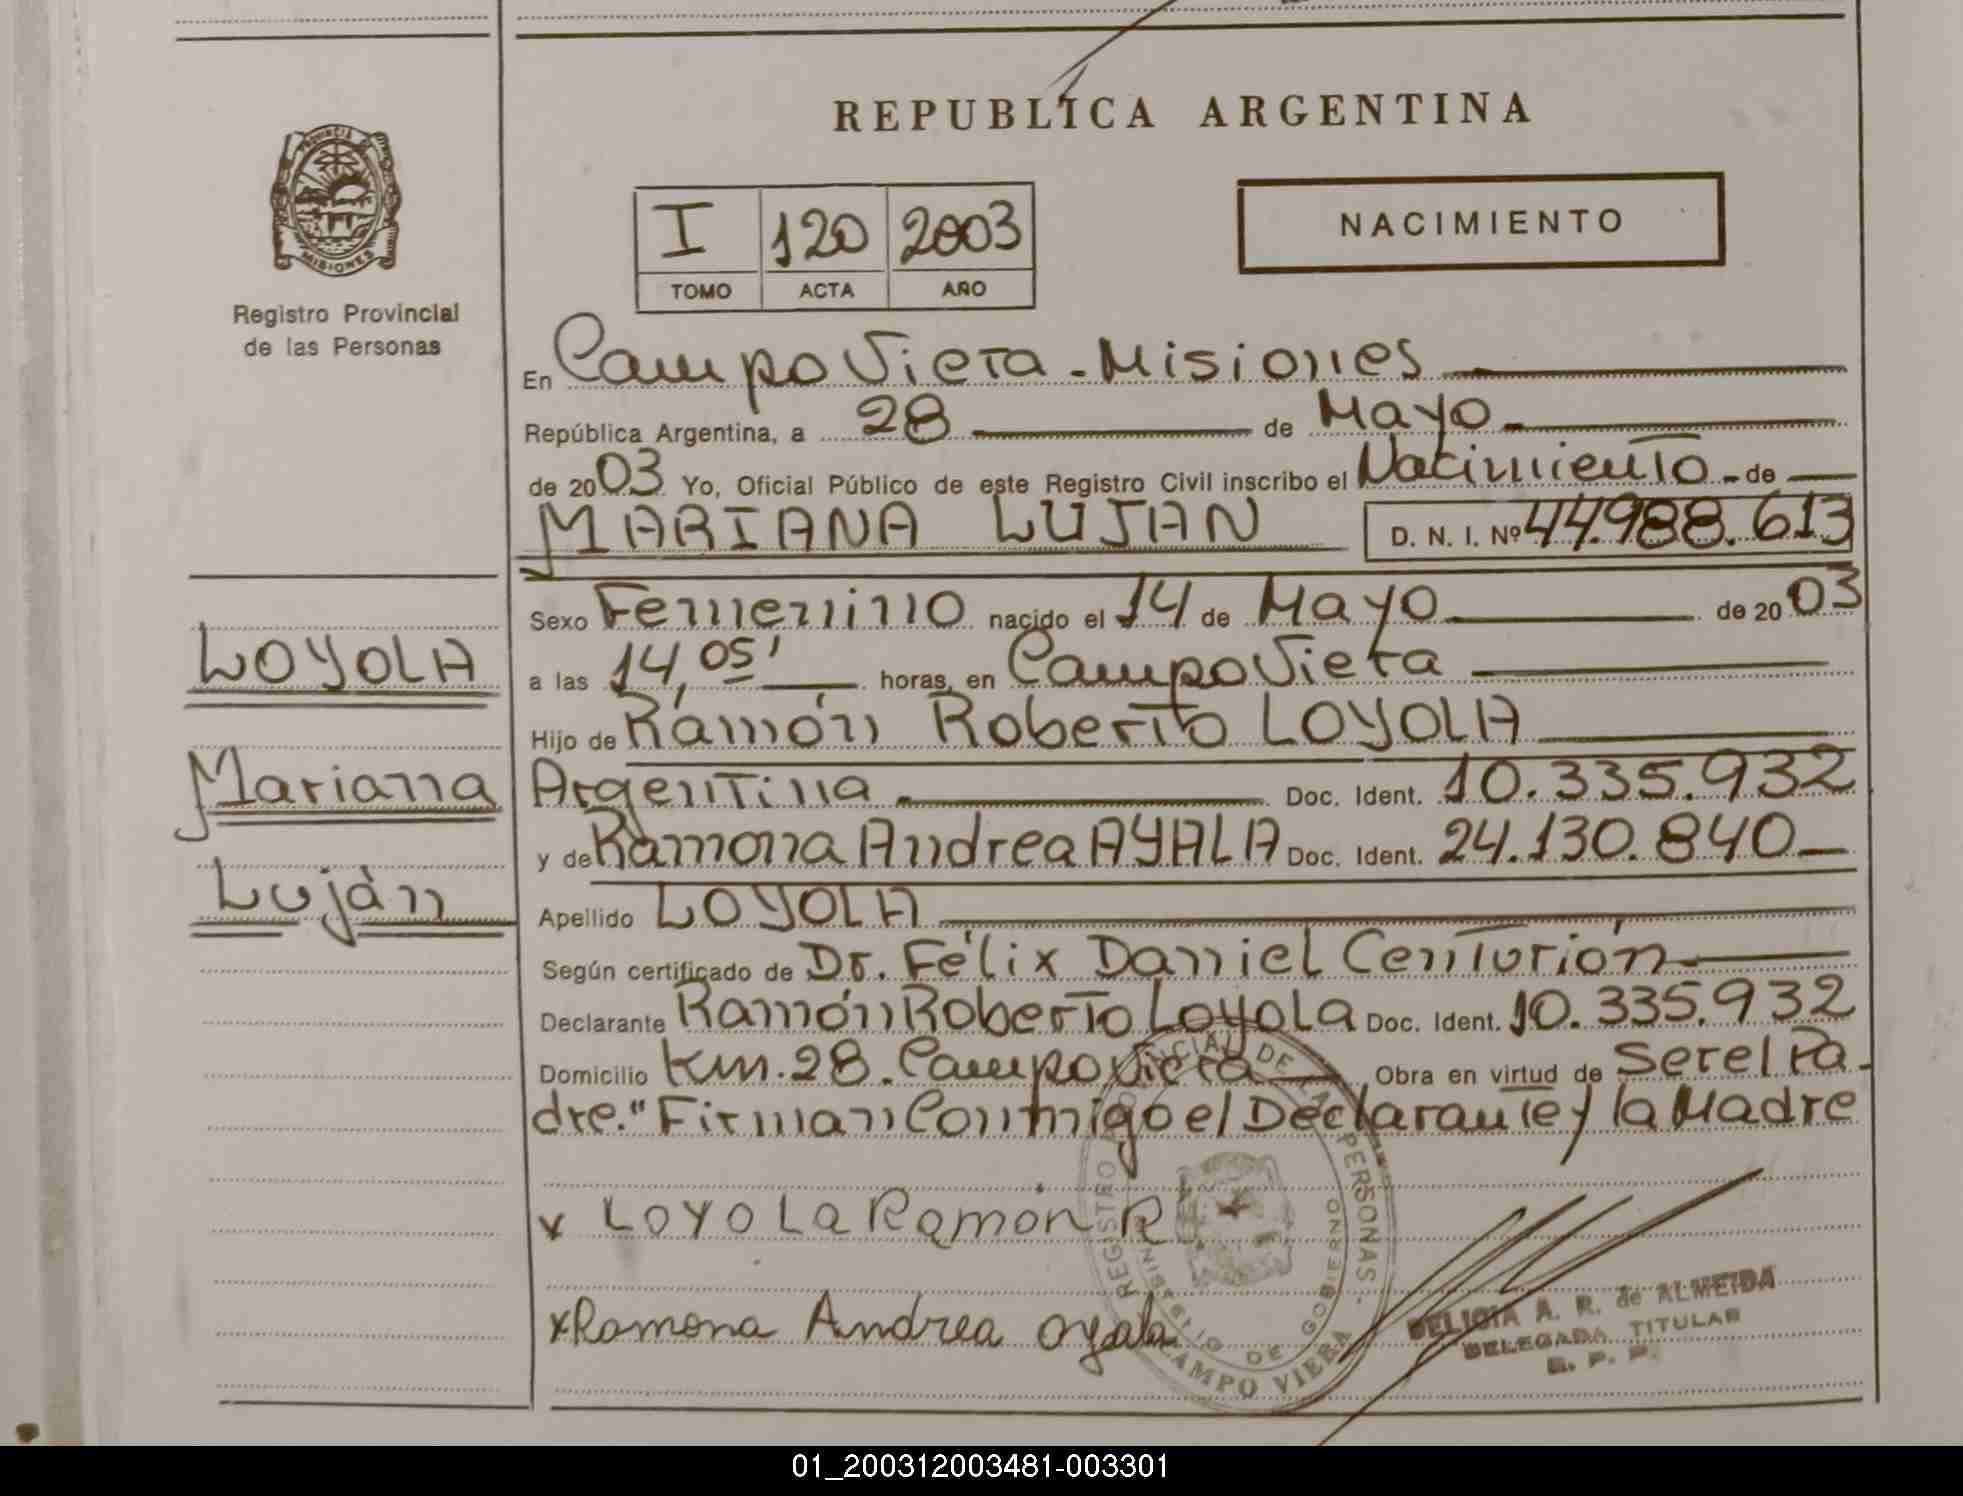 REPUBLICA ARGENTINA
PROVINCIA DE MISIONES
Registro Provincial
de las Personas
I 120 2003
TOMO ACTA AÑO
NACIMIENTO
En Campo Viera - Misiones
República Argentina, a 28 de Mayo
de 2003 Yo, Oficial Público de este Registro Civil inscribo el Nacimiento - de
MARIANA LUJAN D. N. I. Nº 44.988.613
Sexo Femenino nacido el 14 de Mayo de 2003
a las 14,05' horas, en Campo Viera
Hijo de Ramón Roberto LOYOLA
Argentina Doc. Ident. 10.335.932
y de Ramona Andrea AYALA Doc. Ident. 24.130.840
Apellido LOYOLA
Según certificado de Dr. Félix Daniel Centurión
Declarante Ramón Roberto Loyola Doc. Ident. 10.335.932
Domicilio Km. 28. Campo Viera Obra en virtud de Ser el Pa-
dre." Firman Conmigo el Declarante y la Madre
LOYOLA
Mariana
Luján
x LOYOLA Ramón R
x Ramona Andrea ayala
REGISTRO PROVINCIAL DE LAS PERSONAS
MINISTERIO DE GOBIERNO
CAMPO VIERA
DELICIA A. R. de ALMEIDA
DELEGADA TITULAR
R. P. P.
01_200312003481-003301